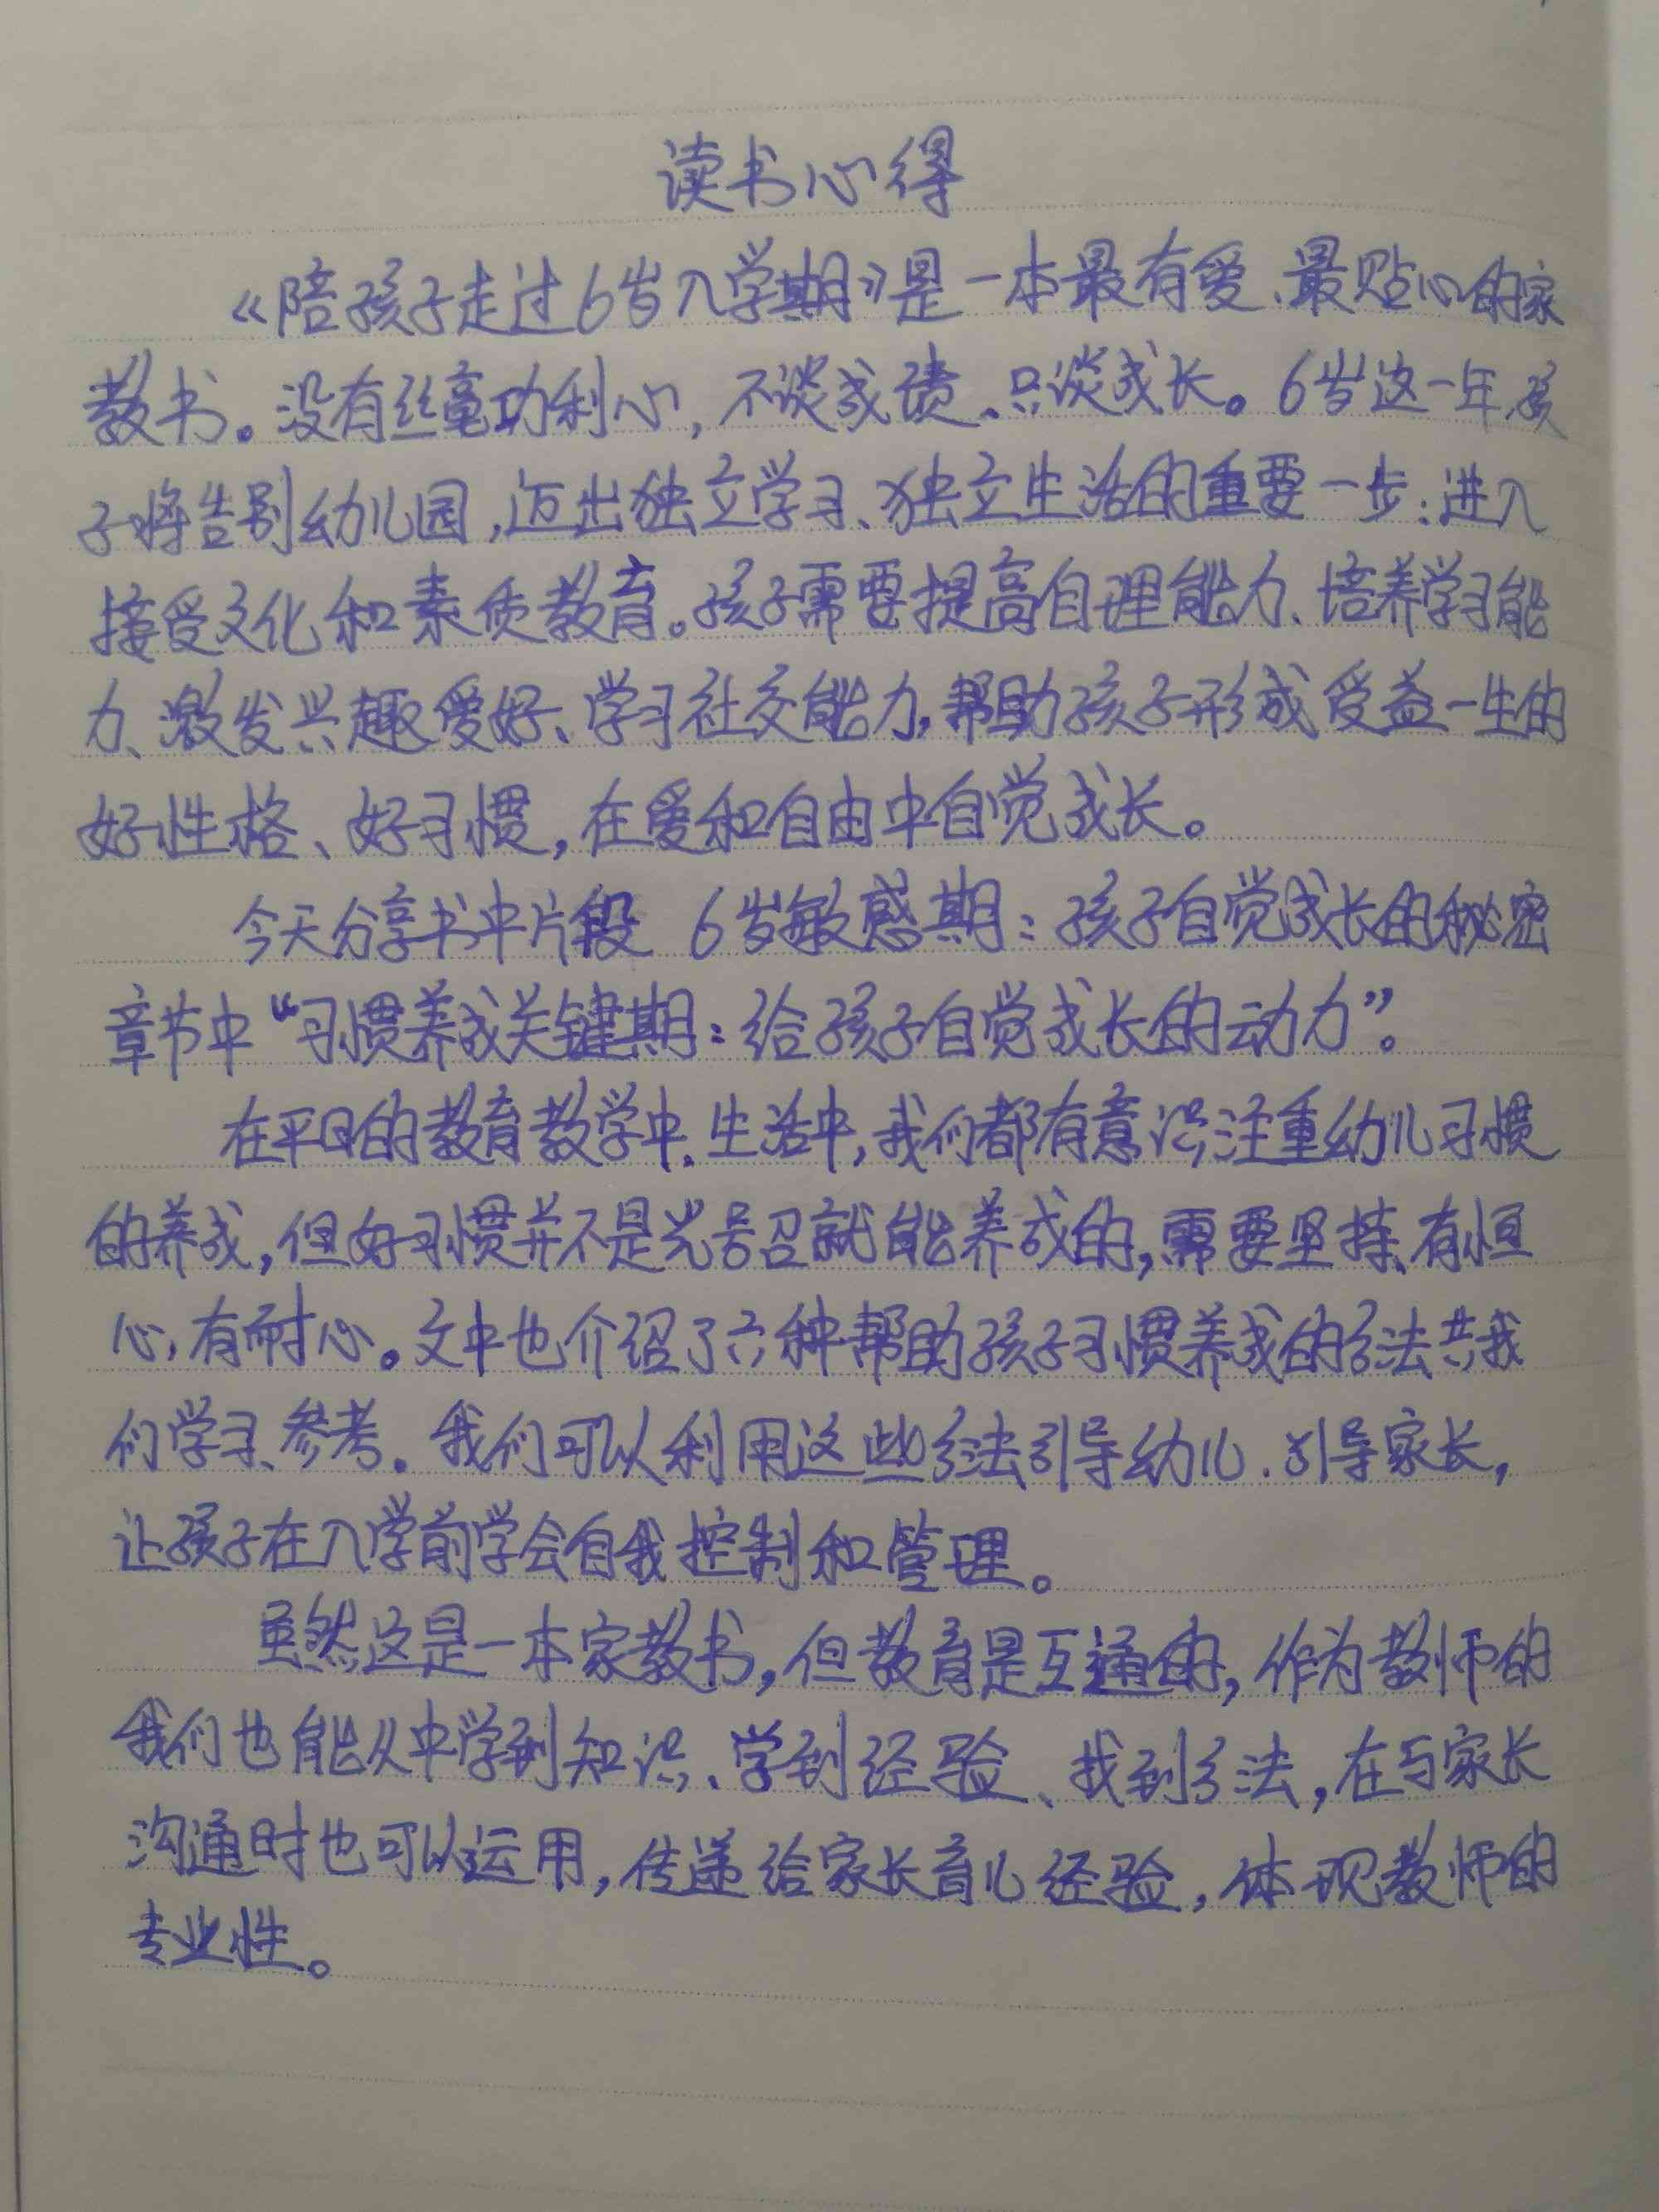 读书心得
《陪孩子走过6岁入学期》是一本最有爱、最贴心的家
教书。没有丝毫功利心,不谈成绩、只谈成长。6岁这一年,孩
子将告别幼儿园,迈出独立学习、独立生活的重要一步:进入
接受文化和素质教育。孩子需要提高自理能力、培养学习能
力、激发兴趣爱好、学习社交能力,帮助孩子形成受益一生的
好性格、好习惯,在爱和自由中自觉成长。
今天分享书中片段 6岁敏感期:孩子自觉成长的秘密
章节中“习惯养成关键期:给孩子自觉成长的动力”。
在平日的教育教学中、生活中,我们都有意识注重幼儿习惯
的养成,但好习惯并不是光号召就能养成的,需要坚持、有恒
心,有耐心。文中也介绍了六种帮助孩子习惯养成的方法共我
们学习、参考。我们可以利用这些方法引导幼儿、引导家长,
让孩子在入学前学会自我控制和管理。
虽然这是一本家教书,但教育是互通的,作为教师的
我们也能从中学到知识、学到经验、找到方法,在与家长
沟通时也可以运用,传递给家长育儿经验,体现教师的
专业性。